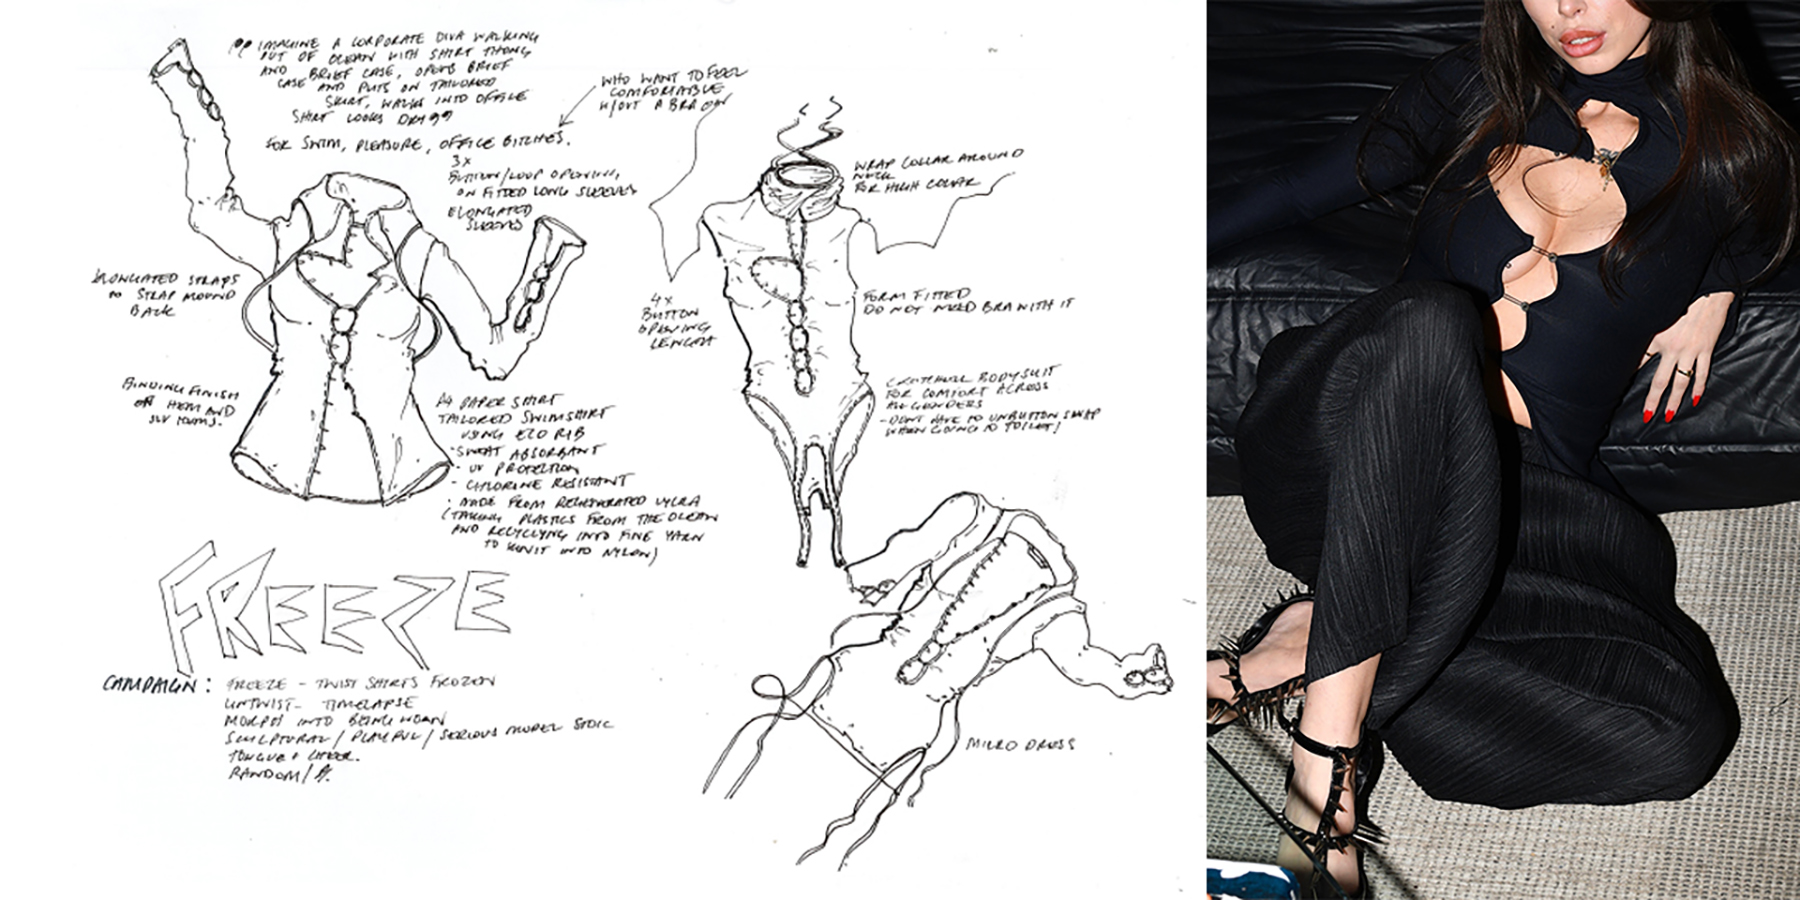 "IMAGINE A CORPORATE DIVA WALKING
OUT OF OCEAN WITH SHIRT THONG
AND BRIEF CASE, OPENS BRIEF
CASE AND PUTS ON TAILORED
SKIRT, WALKS INTO OFFICE
SHIRT LOOKS DRY"
FOR SWIM, PLEASURE, OFFICE BITCHES.
WHO WANT TO FEEL
COMFORTABLE
W/OUT A BRA ON
3x
BUTTON/LOOP OPENING,
ON FITTED LONG SLEEVES
ELONGATED
SLEEVES
ELONGATED STRAPS
TO STRAP AROUND
BACK
BINDING FINISH
HEM AND
SLV HEMS.
A4 PAPER SHIRT
TAILORED SWIMSHIRT
USING ECO RIB
- SWEAT ABSORBANT
- UV PROTECTION
- CHLORINE RESISTANT
- MADE FROM REGENERATED LYCRA
(TAKING PLASTICS FROM THE OCEAN
AND RECYCLYING INTO FINE YARN
TO KNIT INTO NYLON)
WRAP COLLAR AROUND
NECK
FOR HIGH COLLAR
4x
BUTTON
OPENING
LENGTH
FORM FITTED
DO NOT NEED BRA WITH IT
BODYSUIT
FOR COMFORT ACROSS
ALL GENDERS
- DONT HAVE TO UNBUTTON SNAP
WHEN GOING TO TOILET!
MICRO DRESS
FREEZE
CAMPAIGN: FREEZE - TWIST SHIRTS FROZEN
UNTWIST - TIMELAPSE
MORPHS INTO BEING WORN
SCULPTURAL / PLAYFUL / SERIOUS MODEL STOIC
TONGUE + CHEEK.
RANDOM/